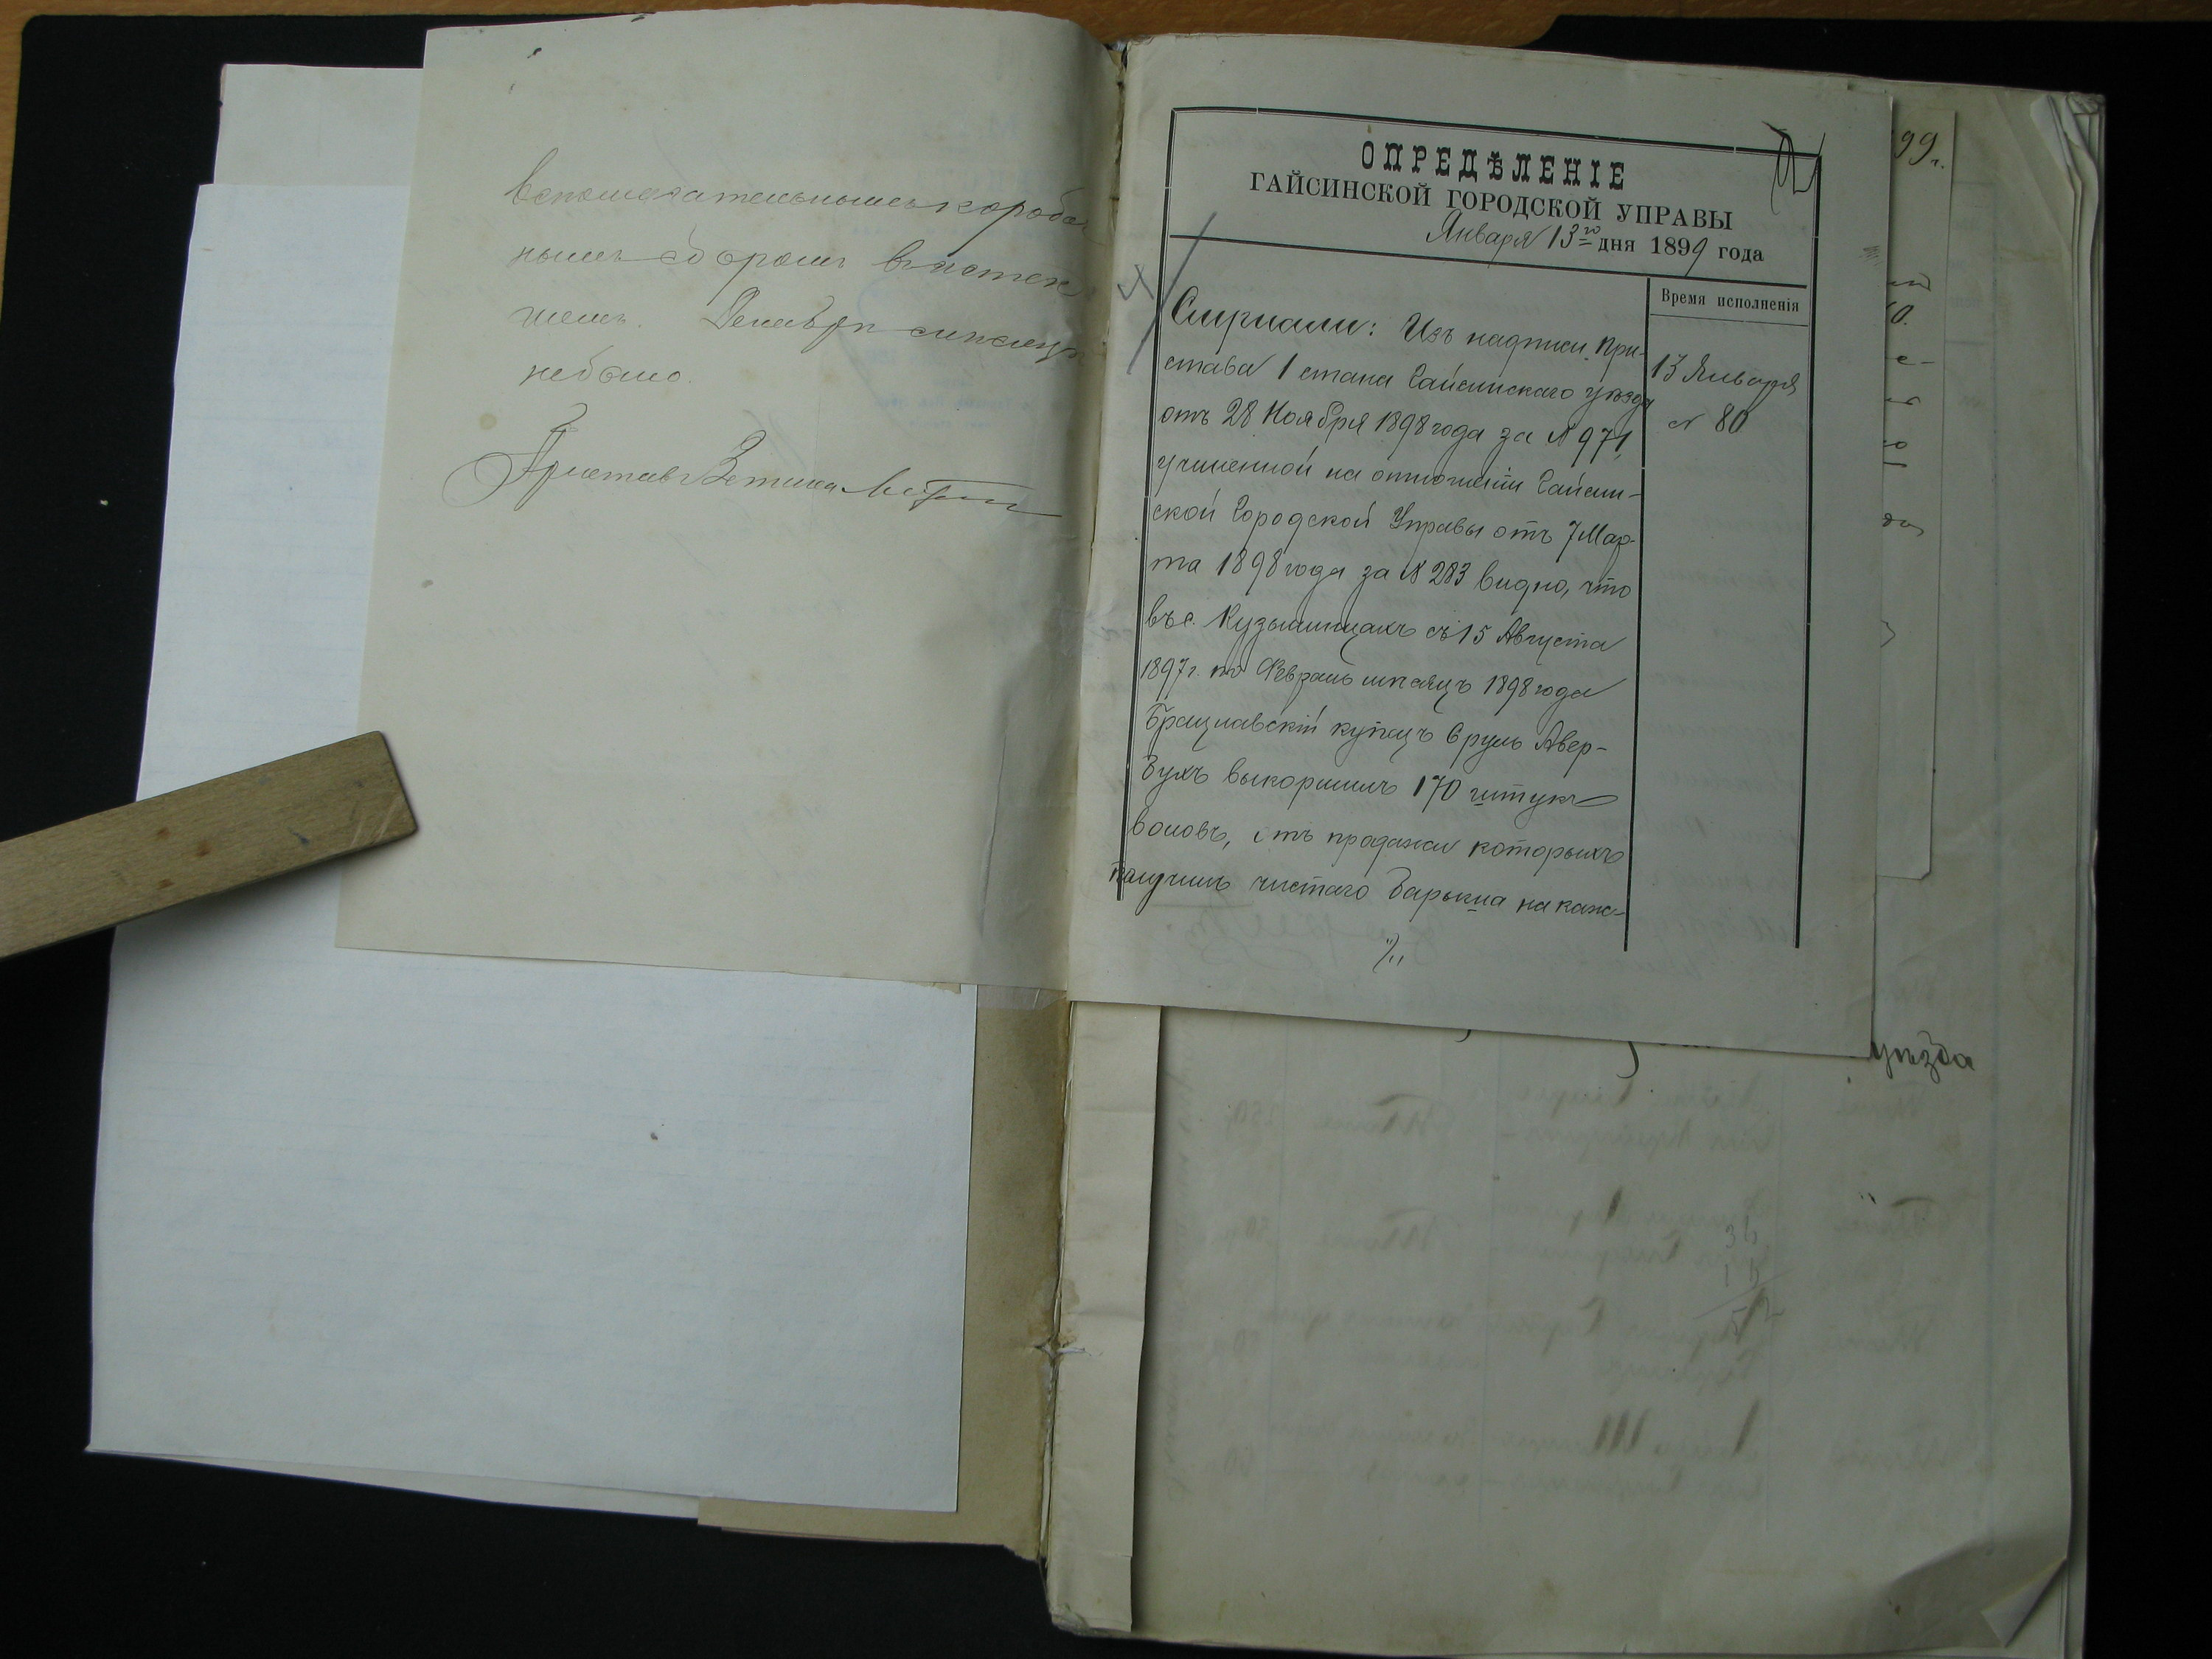 вспомогательнымъ короboч
нымъ сборомъ въ истек
шемъ Декабрѣ мѣсяцѣ
небыло.
Приставъ 2 стана
ОПРЕДѢЛЕНІЕ
ГАЙСИНСКОЙ ГОРОДСКОЙ УПРАВЫ
Января 13го дня 1899 года
Время исполненія
Слушали: Изъ надписи При-
става 1 стана Гайсинскаго уѣзда
отъ 28 Ноября 1898 года за № 971,
учиненной на отношеніи Гайсин-
ской Городской Управы отъ 7 Мар-
та 1898 года за № 283 видно, что
въ с. Кузьминцахъ съ 15 Августа
1897 г. по Февраль мѣсяцъ 1898 года
Брацлавскій купецъ Сруль Авер-
бухъ выкормилъ 170 штукъ
воловъ, отъ продажи которыхъ
получилъ чистаго барыша на каж-
13 Января
№ 80
99 г.
уѣзда